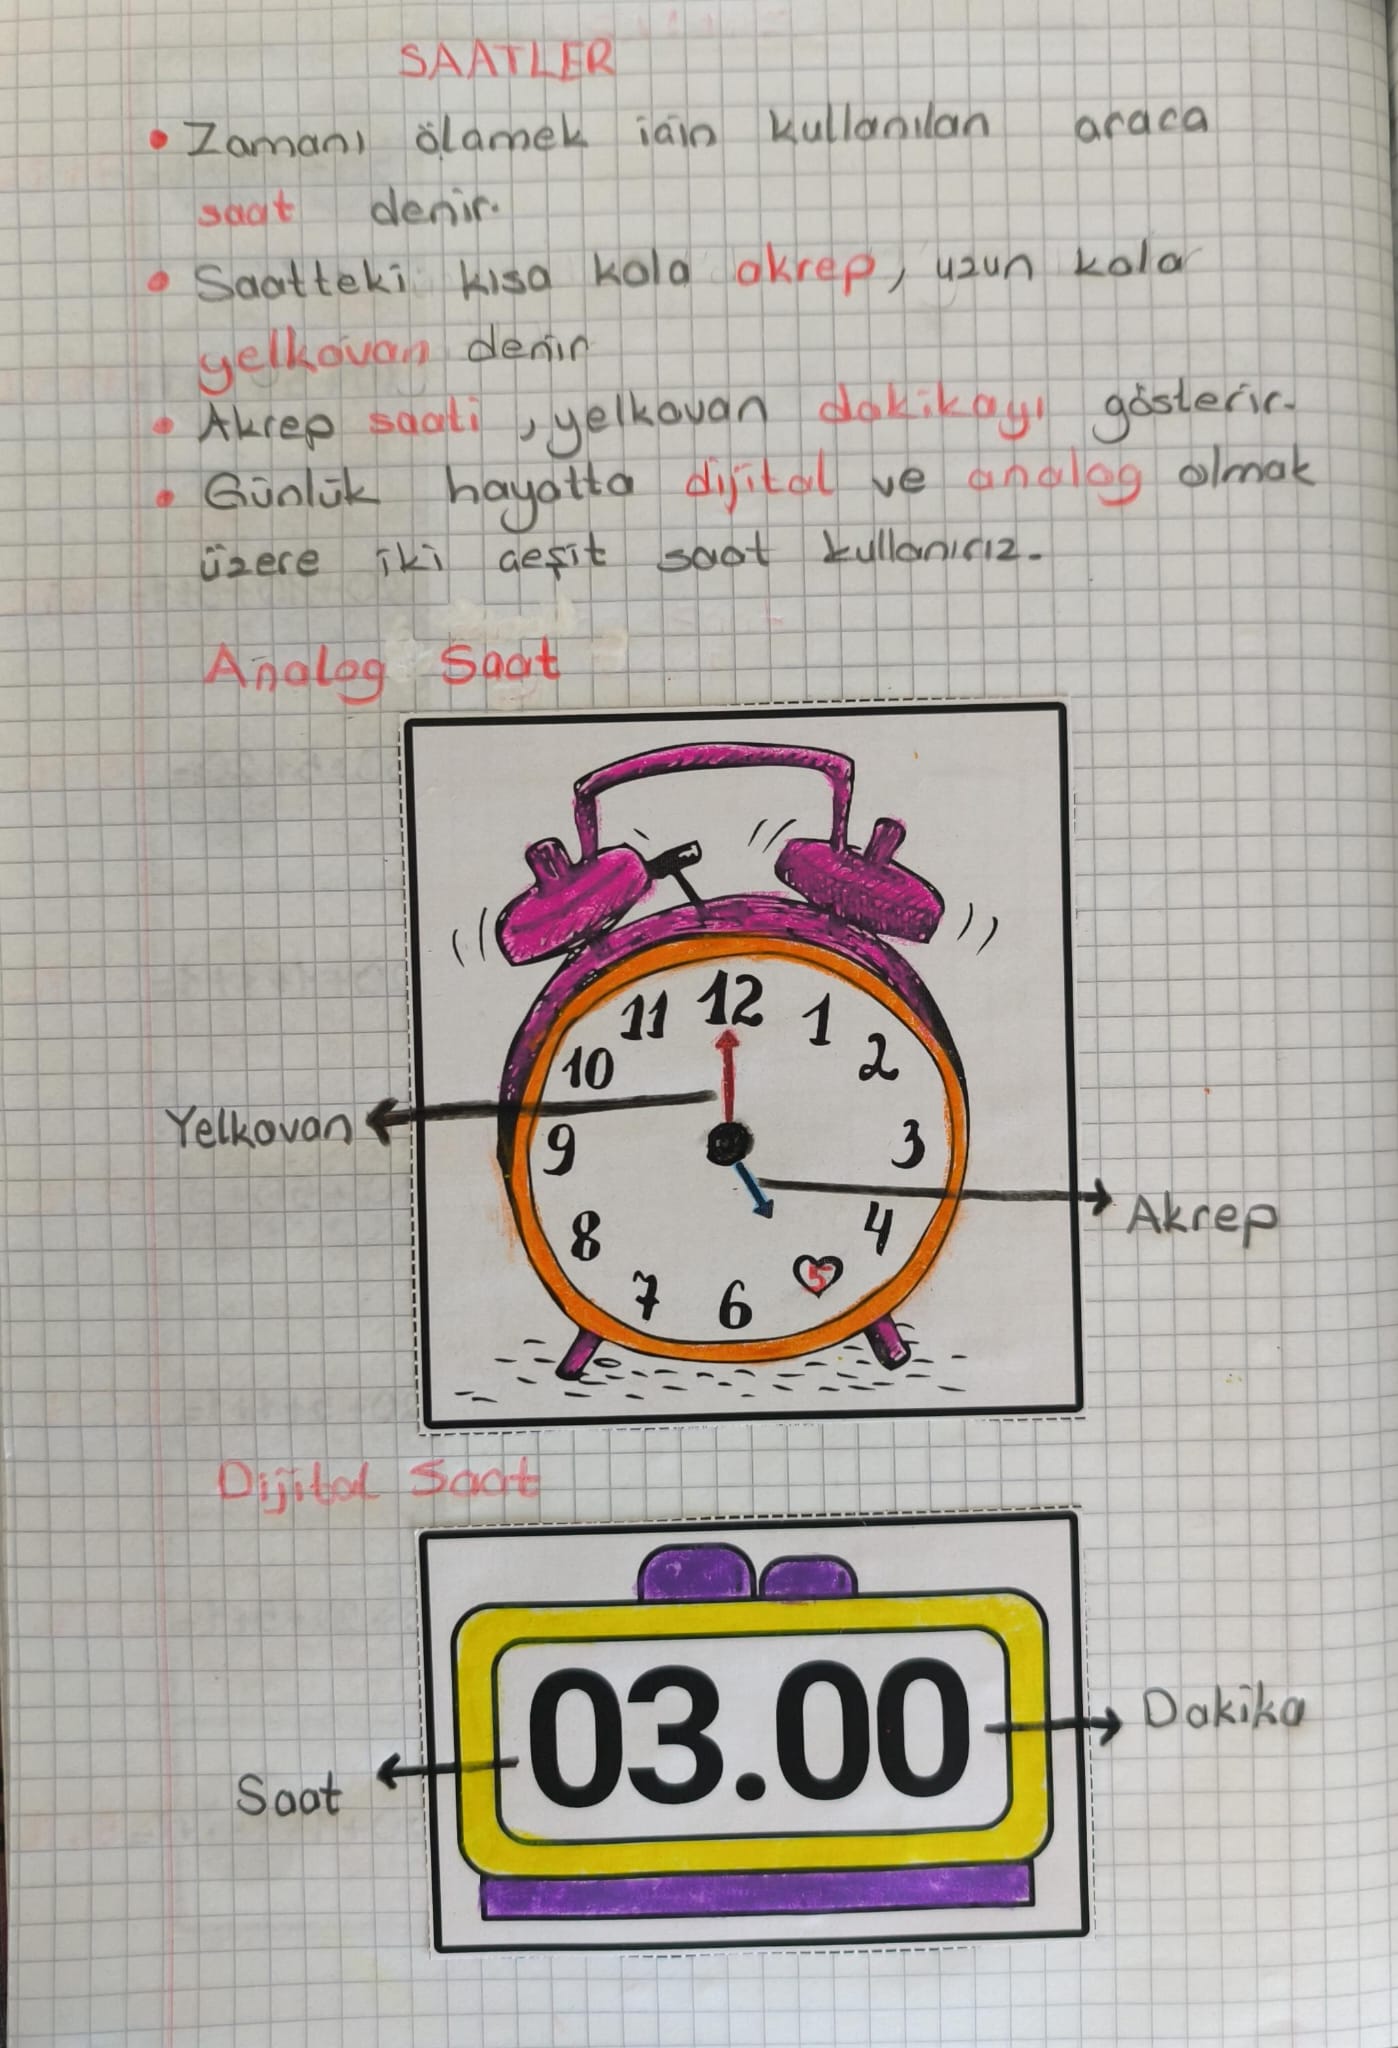 SAATLER
• Zamanı ölamek iain kullanılan araca
saat denir.
• Saatteki kısa kola akrep, uzun kola
yelkovan denir
• Akrep saati, yelkovan dakikayı gösterir.
• Günlük hayatta dijital ve analog olmak
üzere iki aeşit saat kullanırız.
Analog Saat
12
11
1
10
2
Yelkovan
9
3
Akrep
8
4
7
5
6
Dijital Saat
03.00
Dakika
Saat